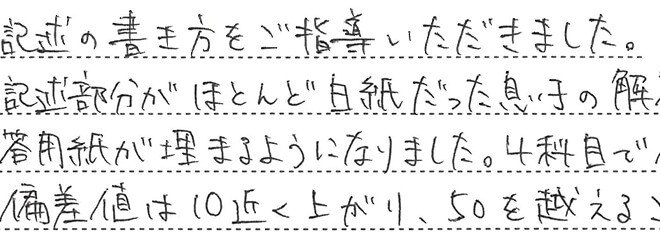 記述の書き方をご指導いただきました。
記述部分がほとんど白紙だった息子の解
答用紙が埋まるようになりました。4科目で
偏差値は10近く上がり、50を越える